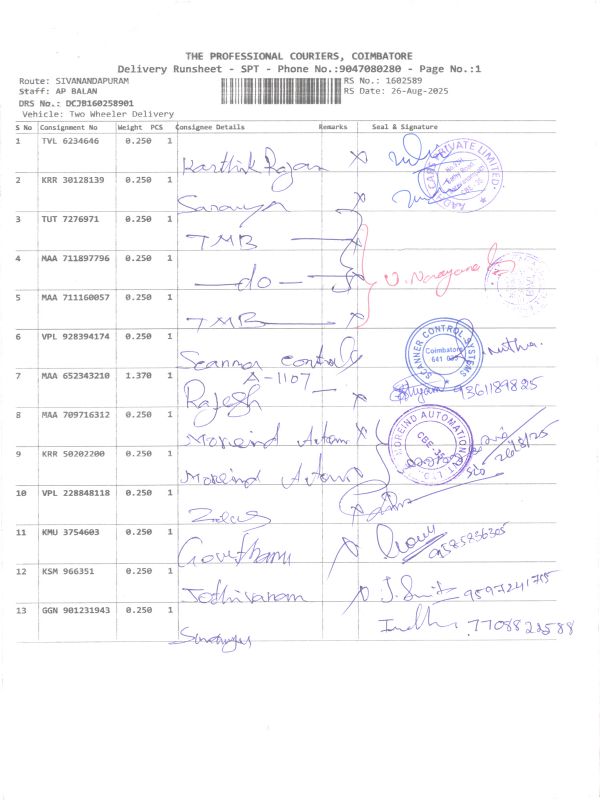 THE PROFESSIONAL COURIERS, COIMBATORE
Delivery Runsheet - SPT - Phone No.:9047080280 - Page No.:1
Route: SIVANANDAPURAM RS No.: 1602589
Staff: AP BALAN RS Date: 26-Aug-2025
DRS No.: DCJB160258901
Vehicle: Two Wheeler Delivery
S No Consignment No Weight PCS Consignee Details Remarks Seal & Signature
1 TVL 6234646 0.250 1 Karthik Rajan
2 KRR 30128139 0.250 1 Saranya
3 TUT 7276971 0.250 1 TMB
4 MAA 711897796 0.250 1 do
5 MAA 711160057 0.250 1 TMB
6 VPL 928394174 0.250 1 Scanner controls SCANNER CONTROL SYSTEMS Coimbatore 641 035
7 MAA 652343210 1.370 1 A-1107 Rajesh 9361189825
8 MAA 709716312 0.250 1 Moreind Autom MOREIND AUTOMATION CBE-35
9 KRR 50202200 0.250 1 Moreind Autom 26/8/25
10 VPL 228848118 0.250 1
11 KMU 3754603 0.250 1 9585236305
12 KSM 966351 0.250 1 Jothivaram 9597241755
13 GGN 901231943 0.250 1 7708822588